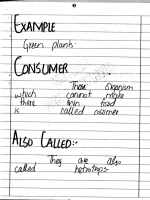 EXAMPLE
Green plants.
CONSUMER
Those organism
which cannot make
there own food
is called cosumer
ALSO CALLED:-
They are also
called hetrotrops